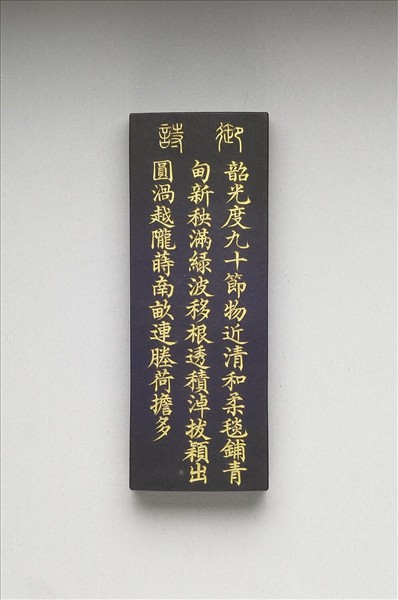 御詩
韶光度九十節物近清和柔毯鋪青
甸新秧滿綠波移根透積淖拔穎出
圓渦越隴蒔南畝連塍荷擔多